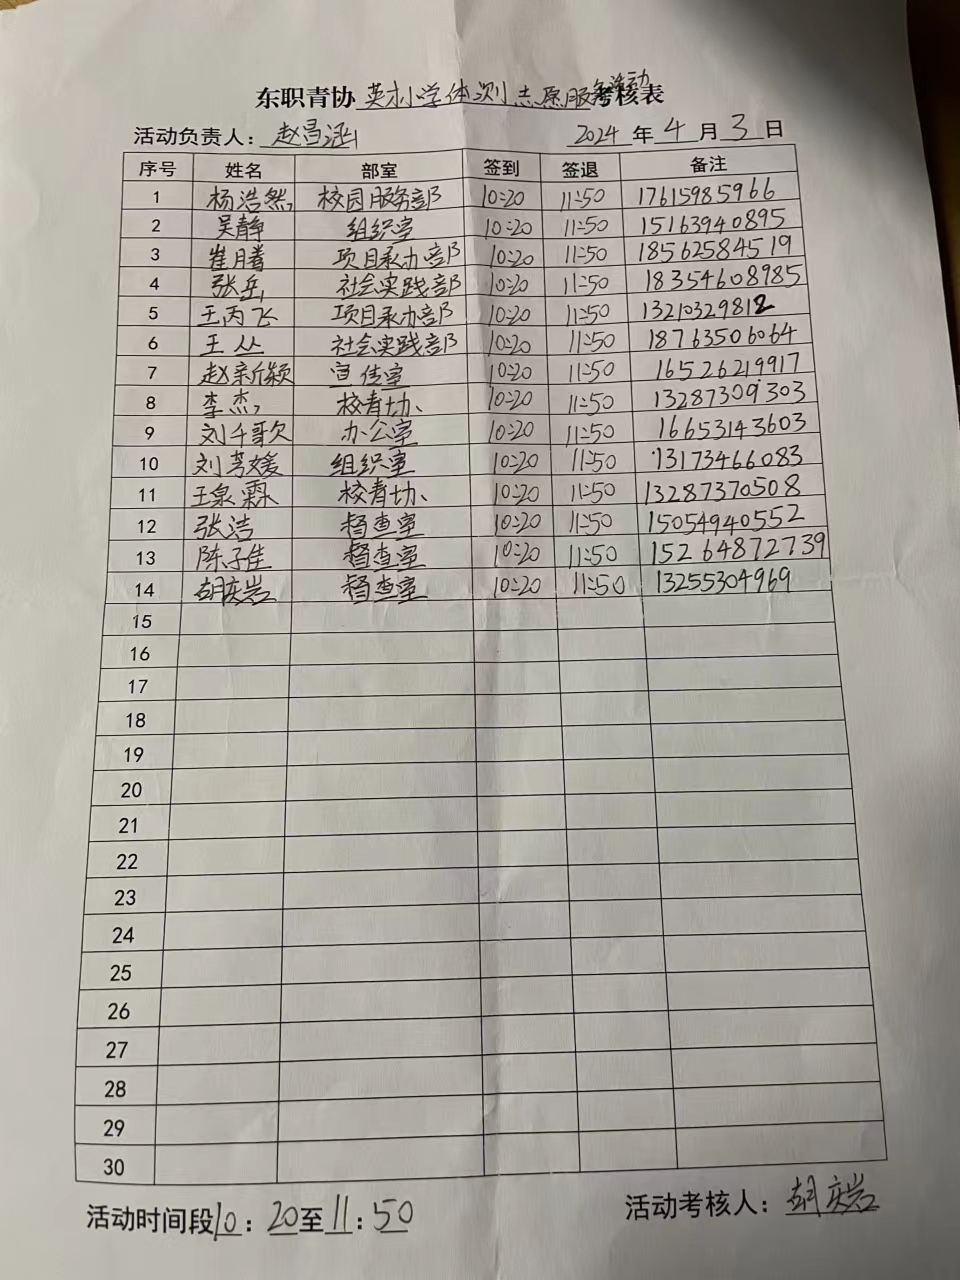 东职青协英才小学体测志愿服务活动考核表
活动负责人：赵昌涵 2024年4月3日
序号 姓名 部室 签到 签退 备注
1 杨浩然 校园服务部 10:20 11:50 17615985966
2 吴静 组织室 10:20 11:50 15163940895
3 崔月腾 项目承办部 10:20 11:50 18562584519
4 张岳 社会实践部 10:20 11:50 18354608985
5 王丙飞 项目承办部 10:20 11:50 13210329812
6 王丛 社会实践部 10:20 11:50 18763506064
7 赵新颖 宣传室 10:20 11:50 16526219917
8 李杰 校青协 10:20 11:50 13287309303
9 刘千歌 办公室 10:20 11:50 16653143603
10 刘芳媛 组织室 10:20 11:50 13173466083
11 王泉霖 校青协 10:20 11:50 13287370508
12 张洁 督查室 10:20 11:50 15054940552
13 陈子佳 督查室 10:20 11:50 15264872739
14 胡庆岩 督查室 10:20 11:50 13255304969
15
16
17
18
19
20
21
22
23
24
25
26
27
28
29
30
活动时间段10:20至11:50 活动考核人：胡庆岩